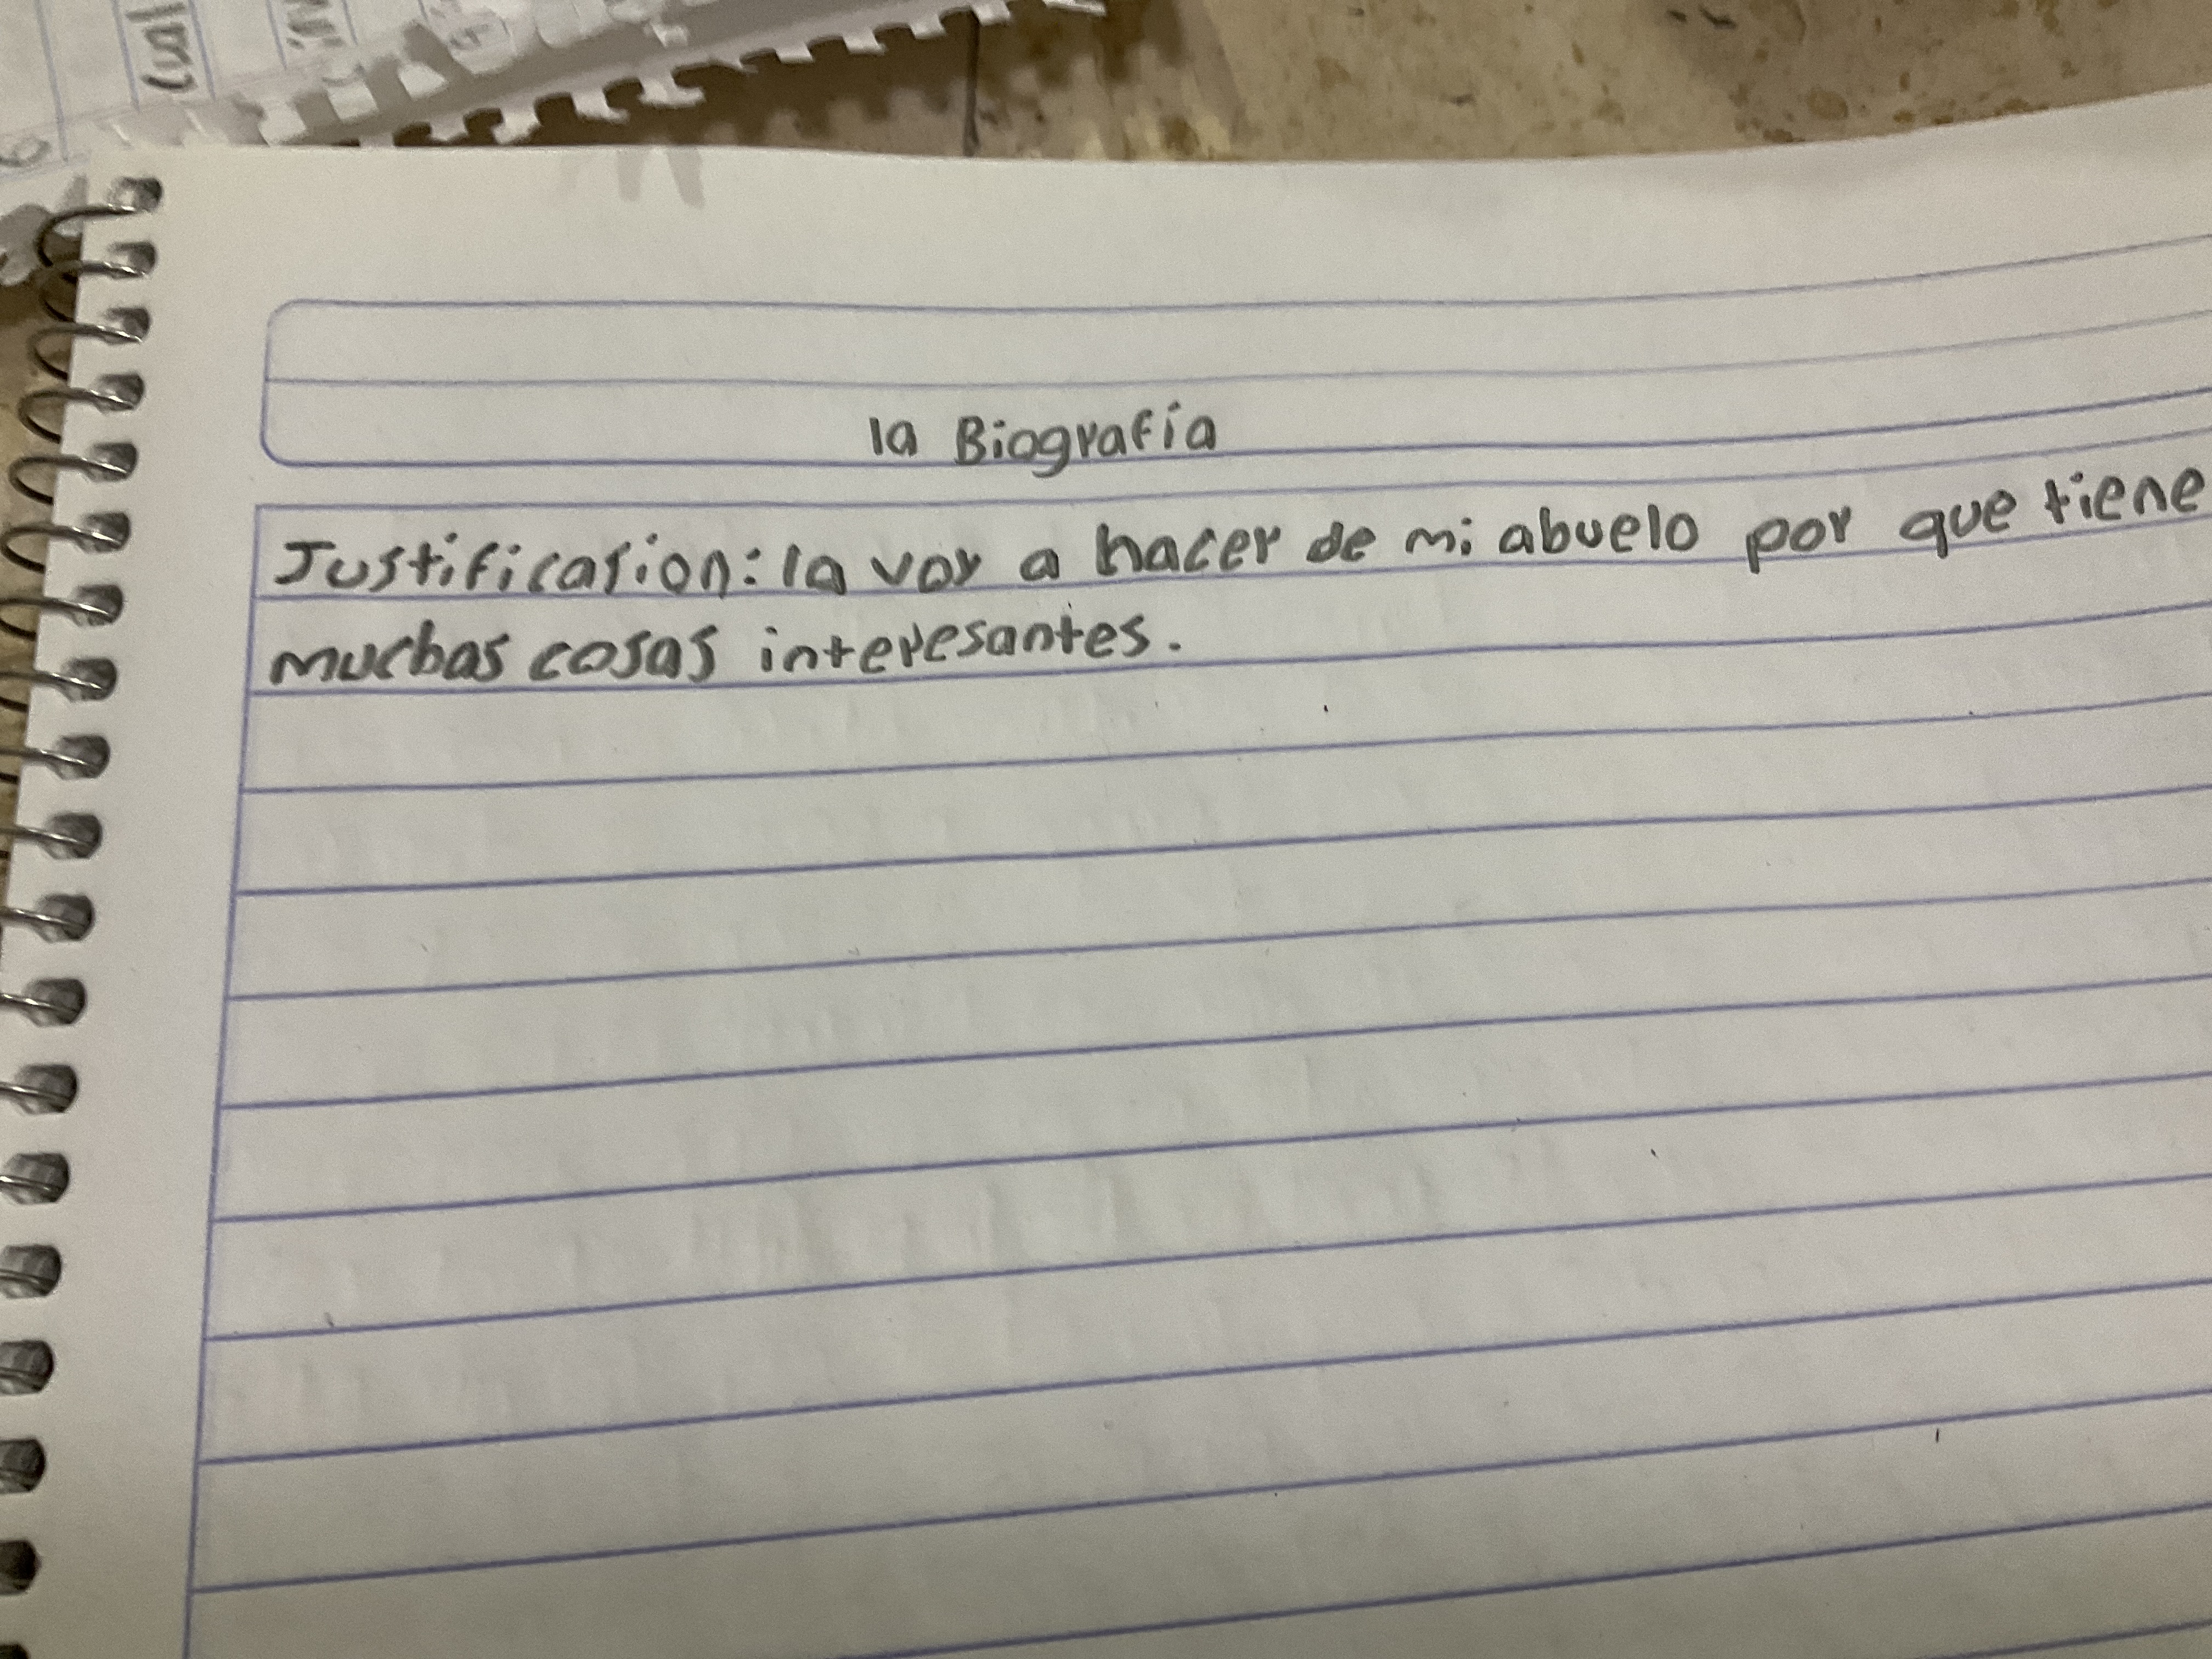 la Biografía
Justificasion: la voy a hacer de mi abuelo por que tiene
muchas cosas interesantes.